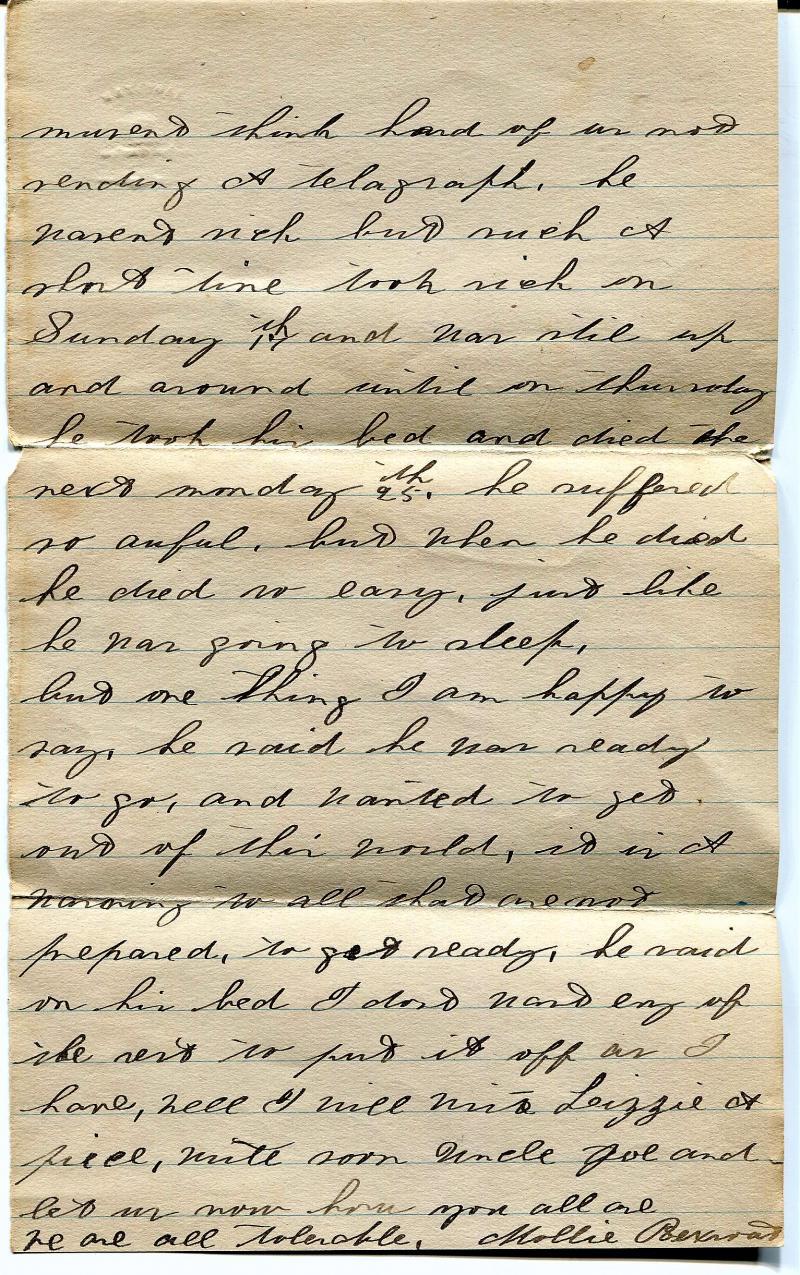 musent think hard of us not
sending A telagraph. he
wasent sick but such A
short time took sick on
Sunday 17th and was stil up
and around until on thursday
he took his bed and died the
next monday 25th. he suffered
so auful. but when he died
he died so easy, just like
he was going to sleep,
but one thing I am happy to
say, he said he was ready
to go, and wanted to get
out of this world, it is A
warning to all that are not
prepared, to get ready, he said
on his bed I dont want eny of
the rest to put it off as I
have, well I will write Lizzie A
piece, write soon Uncle Joe and
let us now how you all are
we are all tolerable. Mollie